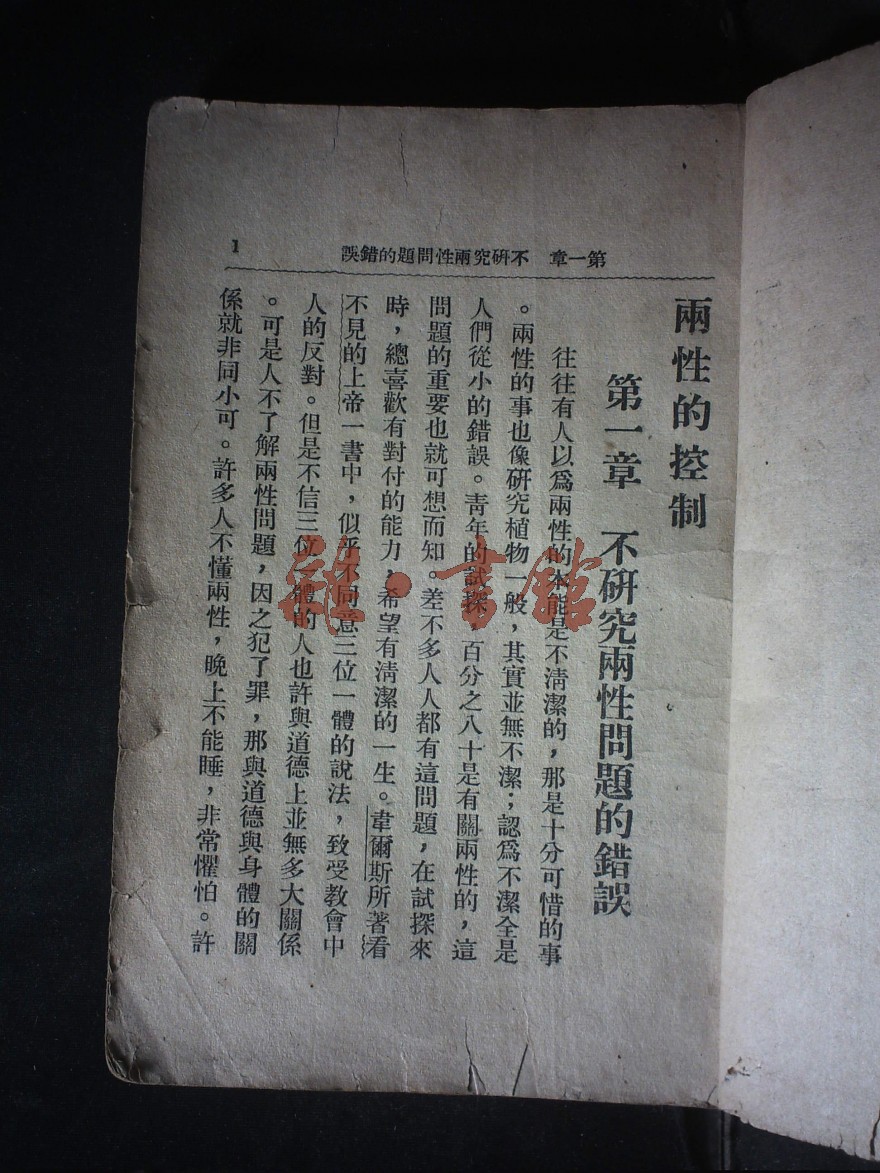 第一章　不研究兩性問題的錯誤
1
兩性的控制
第一章　不研究兩性問題的錯誤
往往有人以爲兩性的本能是不清潔的，那是十分可惜的事
。兩性的事也像研究植物一般，其實並無不潔；認爲不潔全是
人們從小的錯誤。青年的試探，百分之八十是有關兩性的，這
問題的重要也就可想而知。差不多人人都有這問題，在試探來
時，總喜歡有對付的能力，希望有清潔的一生。韋爾斯所著看
不見的上帝一書中，似乎不同意三位一體的說法，致受教會中
人的反對。但是不信三位一體的人也許與道德上並無多大關係
。可是人不了解兩性問題，因之犯了罪，那與道德與身體的關
係就非同小可。許多人不懂兩性，晚上不能睡，非常懼怕。許
雜·書館